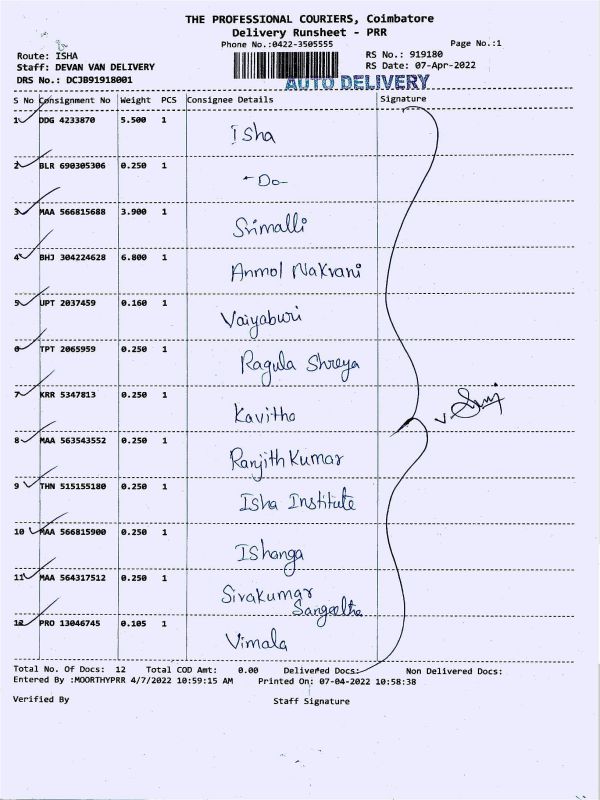 THE PROFESSIONAL COURIERS, Coimbatore
Delivery Runsheet - PRR
Phone No.:0422-3505555 Page No.:1
Route: ISHA RS No.: 919180
Staff: DEVAN VAN DELIVERY RS Date: 07-Apr-2022
DRS No.: DCJB91918001 AUTO DELIVERY
S No Consignment No Weight PCS Consignee Details Signature
1 DDG 4233870 5.500 1 Isha
2 BLR 690305306 0.250 1 -Do-
3 MAA 566815688 3.900 1 Srimalli
4 BHJ 304224628 6.800 1 Anmol Nakrani
5 UPT 2037459 0.160 1 Vaiyaburi
6 TPT 2065959 0.250 1 Ragula Shreya
7 KRR 5347813 0.250 1 Kavitha
8 MAA 563543552 0.250 1 Ranjith Kumar
9 THN 515155180 0.250 1 Isha Institute
10 MAA 566815900 0.250 1 IShanga
11 MAA 564317512 0.250 1 Sivakumar
Sangeetha
12 PRO 13046745 0.105 1 Vimala
Total No. Of Docs: 12 Total COD Amt: 0.00 Delivered Docs: Non Delivered Docs:
Entered By :MOORTHYPRR 4/7/2022 10:59:15 AM Printed On: 07-04-2022 10:58:38
Verified By Staff Signature